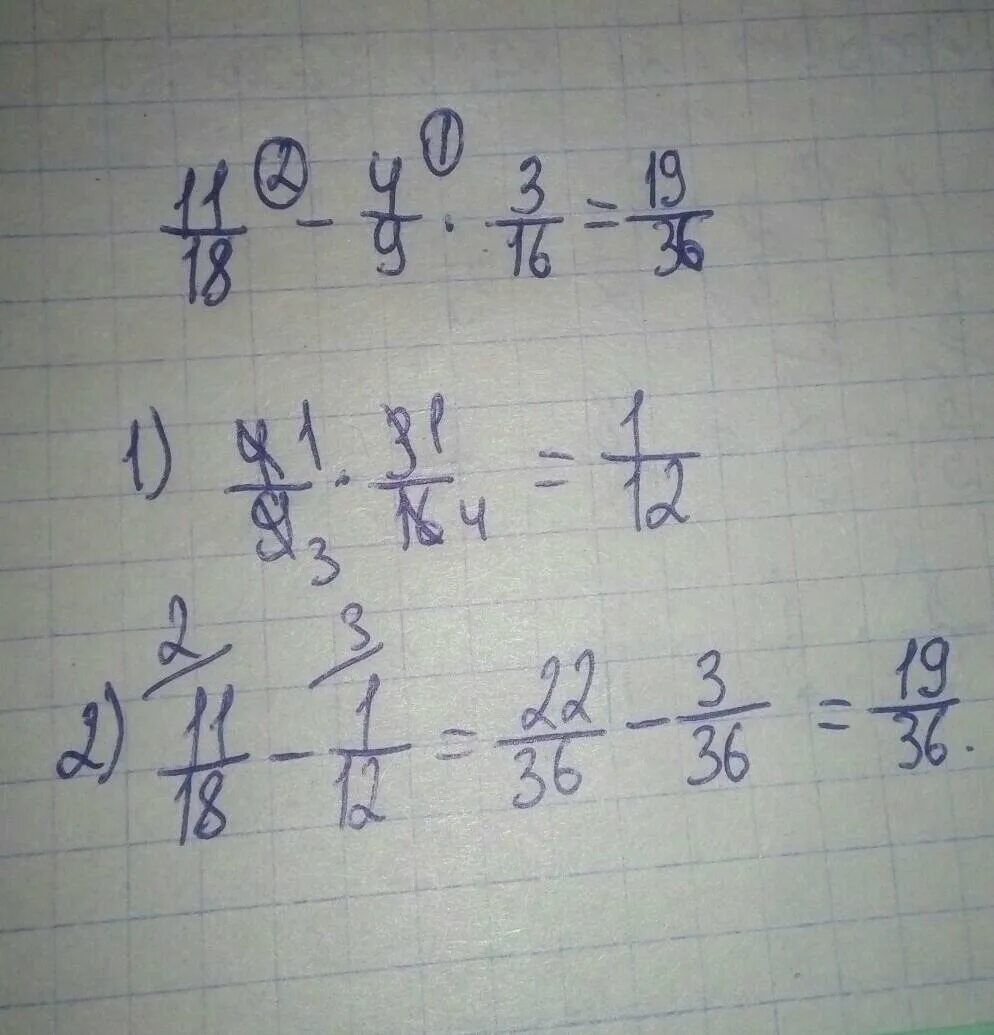 11/18 ② - 4/9 ① · 3/16 = 19/36
1) 4 1/9 3 · 3 1/16 4 = 1/12
2) 2/ 11/18 - 3/ 1/12 = 22/36 - 3/36 = 19/36.